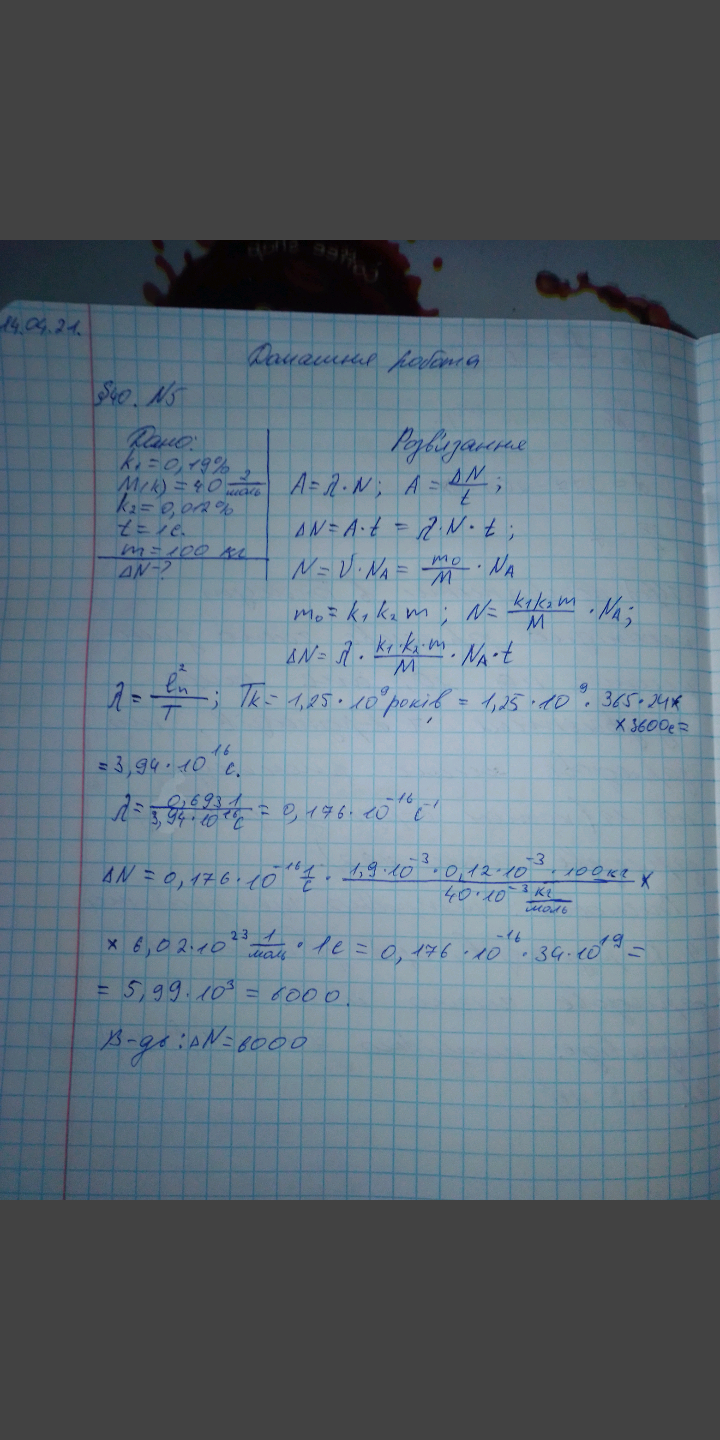 Coffee shop
14.04.21.
Домашня робота
§40. №5
Дано:
k₁ = 0,19%
M(k) = 40 г/моль
k₂ = 0,012%
t = 1с.
m = 100 кг
ΔN-?
Розв'язання
A = λ · N; A = ΔN/t;
ΔN = A · t = λ · N · t;
N = ν · Nₐ = m₀/M · Nₐ
m₀ = k₁ k₂ m; N = k₁k₂m/M · Nₐ;
ΔN = λ · k₁·k₂·m/M · Nₐ · t
λ = ℓn²/T; Tк = 1,25 · 10⁹ років = 1,25 · 10⁹ · 365 · 24 ×
× 3600с =
= 3,94 · 10¹⁶ с.
λ = 0,6931/3,94·10¹⁶с = 0,176 · 10⁻¹⁶ с⁻¹
ΔN = 0,176 · 10⁻¹⁶ 1/с · 1,9·10⁻³ · 0,12·10⁻³ · 100кг/40·10⁻³ кг/моль ×
× 6,02·10²³ 1/моль · 1с = 0,176 · 10⁻¹⁶ · 34·10¹⁹ =
= 5,99 · 10³ = 6000.
В-дь: ΔN = 6000